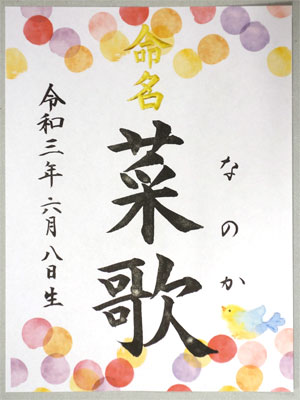 命名
なのか
菜歌
令和三年六月八日生